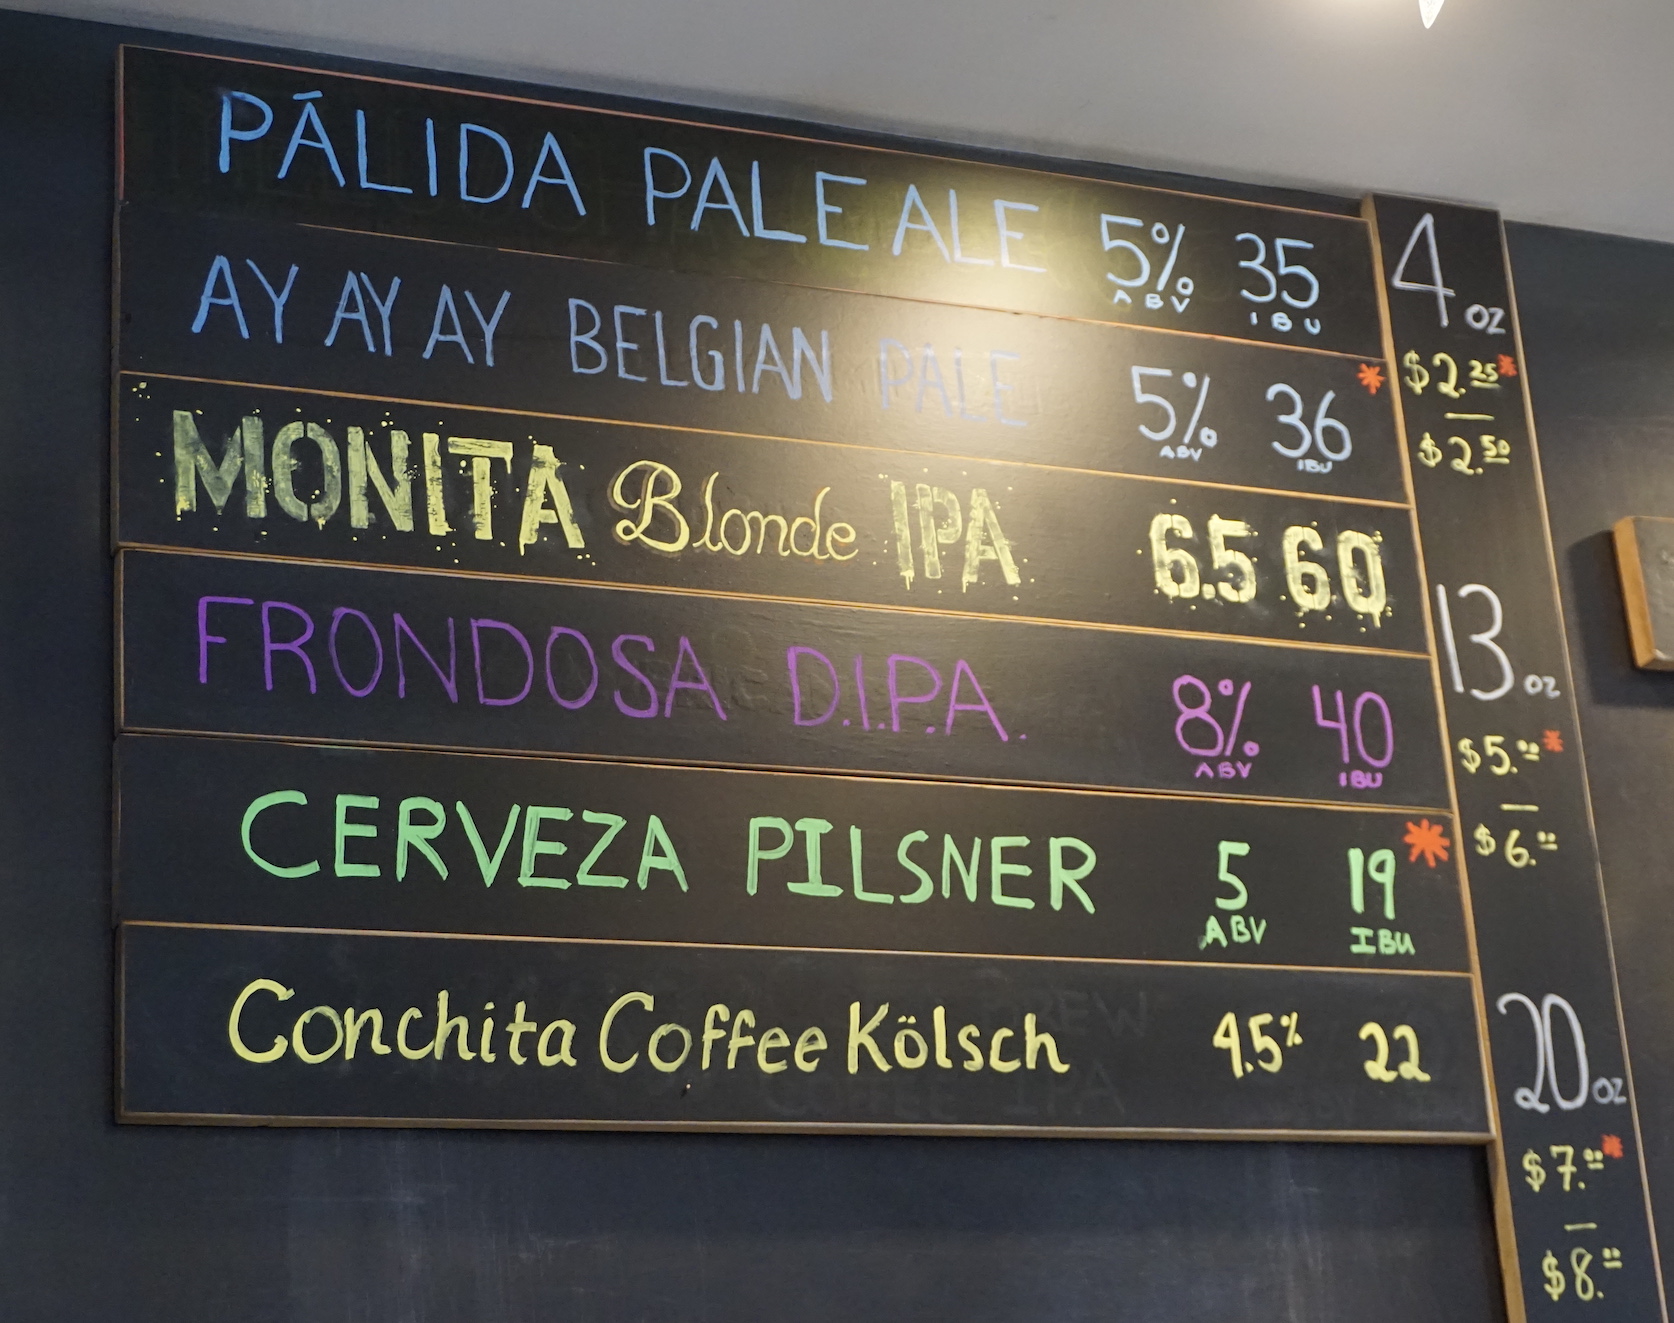 PÁLIDA PALE ALE 5% ABV 35 IBU
AY AY AY BELGIAN PALE 5% ABV 36 IBU *
MONITA Blonde IPA 6.5 60
FRONDOSA D.I.P.A. 8% ABV 40 IBU
CERVEZA PILSNER 5 ABV 19 IBU *
Conchita Coffee Kölsch 4.5% 22
4 oz
$2.25*
—
$2.50
13 oz
$5.00*
—
$6.00
20 oz
$7.00*
—
$8.00